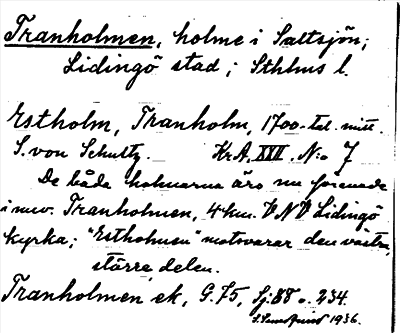 Tranholmen, holme i Saltsjön;
Lidingö stad; Sthlms l.
Estholm, Tranholm, 1700-tal. mitt.
S. von Schultz. Kr.A. XVII. N:o 7
De båda holmarna äro nu förenade
i nuv. Tranholmen, 4 km. VNV Lidingö
kyrka; "Estholmen" motsvarar den västra,
större, delen.
Tranholmen ek, G. 75, Sj: 88 o. 234.
1936.